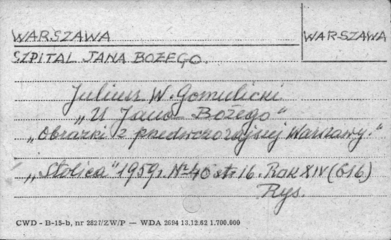 WARSZAWA
WARSZAWA
SZPITAL JANA BOŻEGO.
Juliusz W. Gomulicki
„U Jana Bożego"
„Obrazki z przedwczorajszej Warszawy."
„Stolica" 1959 r. Nr 40 str. 16. Rok XIV (616)
Rys.
CWD - B-15-b, nr 2827/ZW/P — WDA 2694 13.12.62 1.700.000